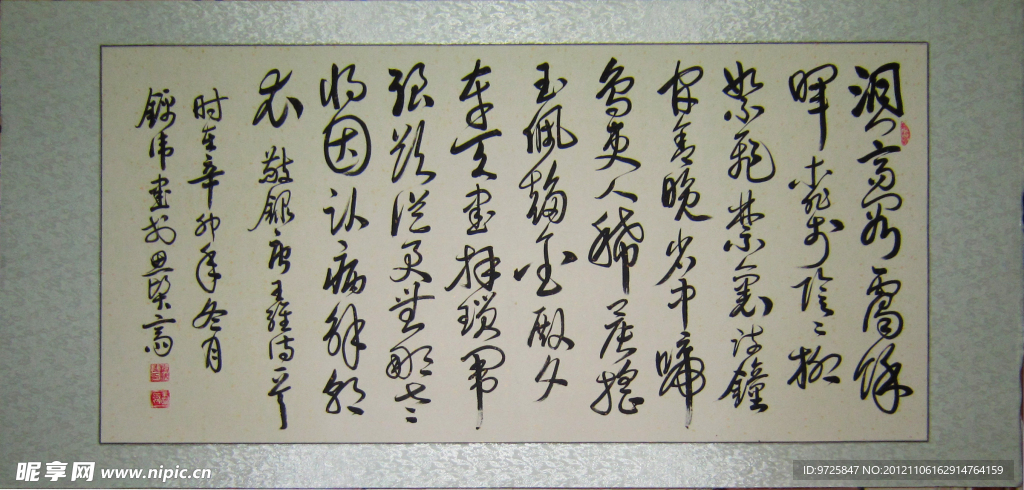 洞门高阁霭馀
晖桃李阴阴柳
絮飞禁裏疏鐘
官舍晚省中啼
鸟吏人稀晨摇
玉佩趋金殿夕
奉天书拜琐闱
强欲从君无那老
将因卧病解朝
衣 敬录唐王维诗一首
时在辛卯年冬月
伟书於斋
昵享网 www.nipic.cn
ID:9725847 NO:20121106162914764159